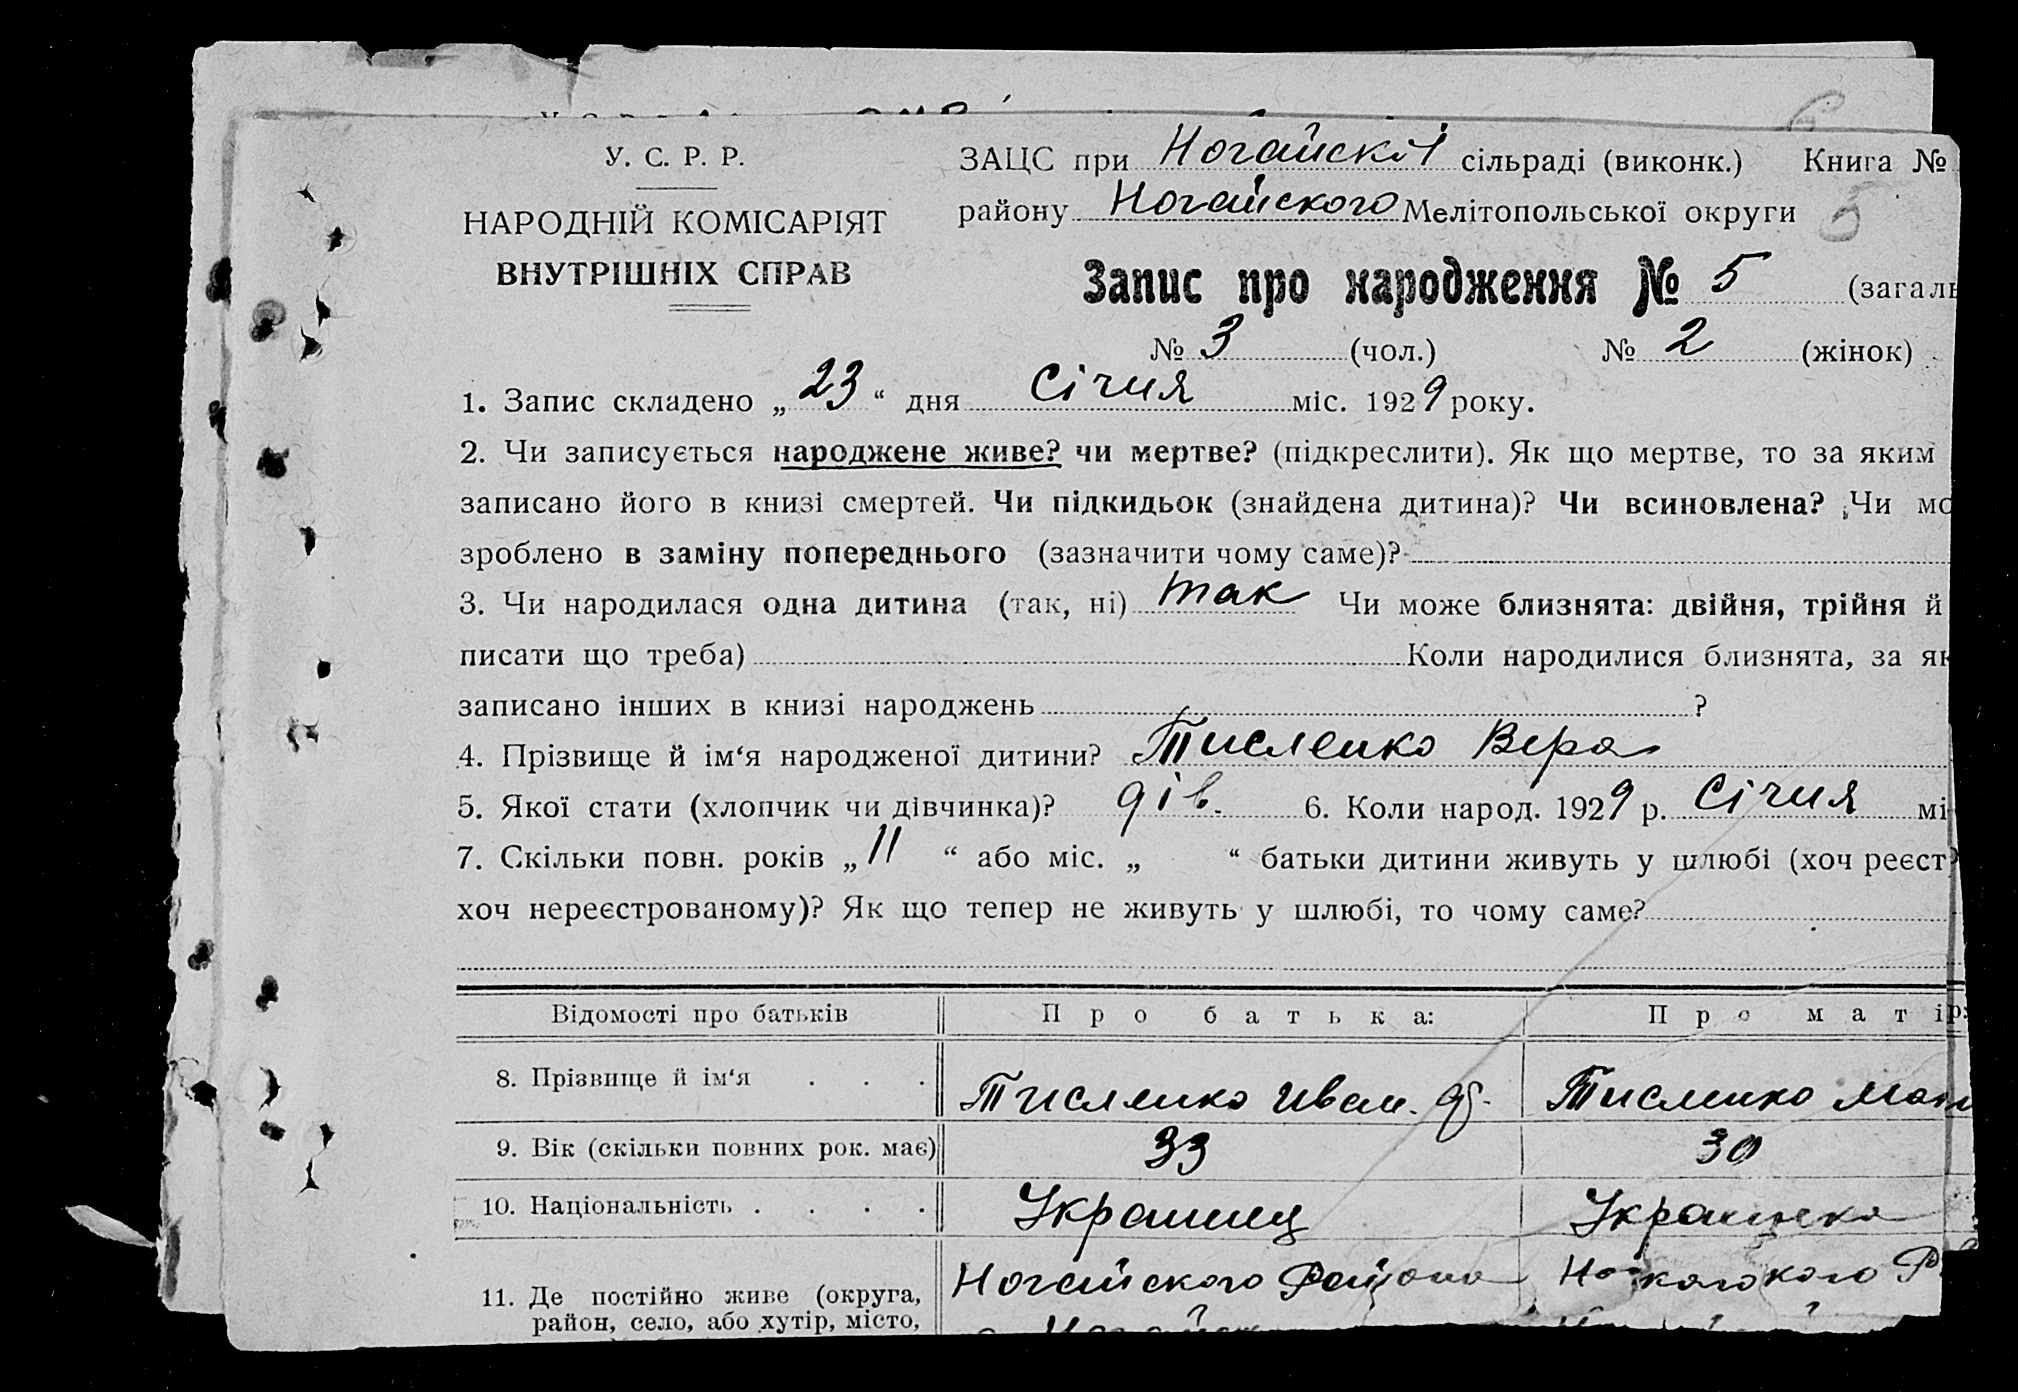 У. С. Р. Р.
НАРОДНІЙ КОМІСАРІЯТ
ВНУТРІШНІХ СПРАВ
ЗАЦС при Ногайскій сільраді (виконк.) Книга №
району Ногайского Мелітопольської округи
5
Запис про народження № 5 (загаль
№ 3 (чол.) № 2 (жінок)
1. Запис складено „ 23 “ дня Січня міс. 1929 року.
2. Чи записується народжене живе? чи мертве? (підкреслити). Як що мертве, то за яким
записано його в книзі смертей. Чи підкидьок (знайдена дитина)? Чи всиновлена? Чи мо
зроблено в заміну попереднього (зазначити чому саме)?
3. Чи народилася одна дитина (так, ні) так Чи може близнята: двійня, трійня й
писати що треба) Коли народилися близнята, за як
записано інших в книзі народжень ?
4. Прізвище й ім‘я народженої дитини? Тисленко Вера
5. Якої стати (хлопчик чи дівчинка)? дів. 6. Коли народ. 1929 р. Січня мі
7. Скільки повн. років „ 11 “ або міс. „ “ батьки дитини живуть у шлюбі (хоч реєст
хоч нереєстрованому)? Як що тепер не живуть у шлюбі, то чому саме?
Відомості про батьків Про батька: Про матір:
8. Прізвище й ім‘я . . . Тисленко Иван. Тисленко
9. Вік (скільки повних рок. має) 33 30
10. Національність . . . . Украинец Украинка
11. Де постійно живе (округа, Ногайского Района
район, село, або хутір, місто,